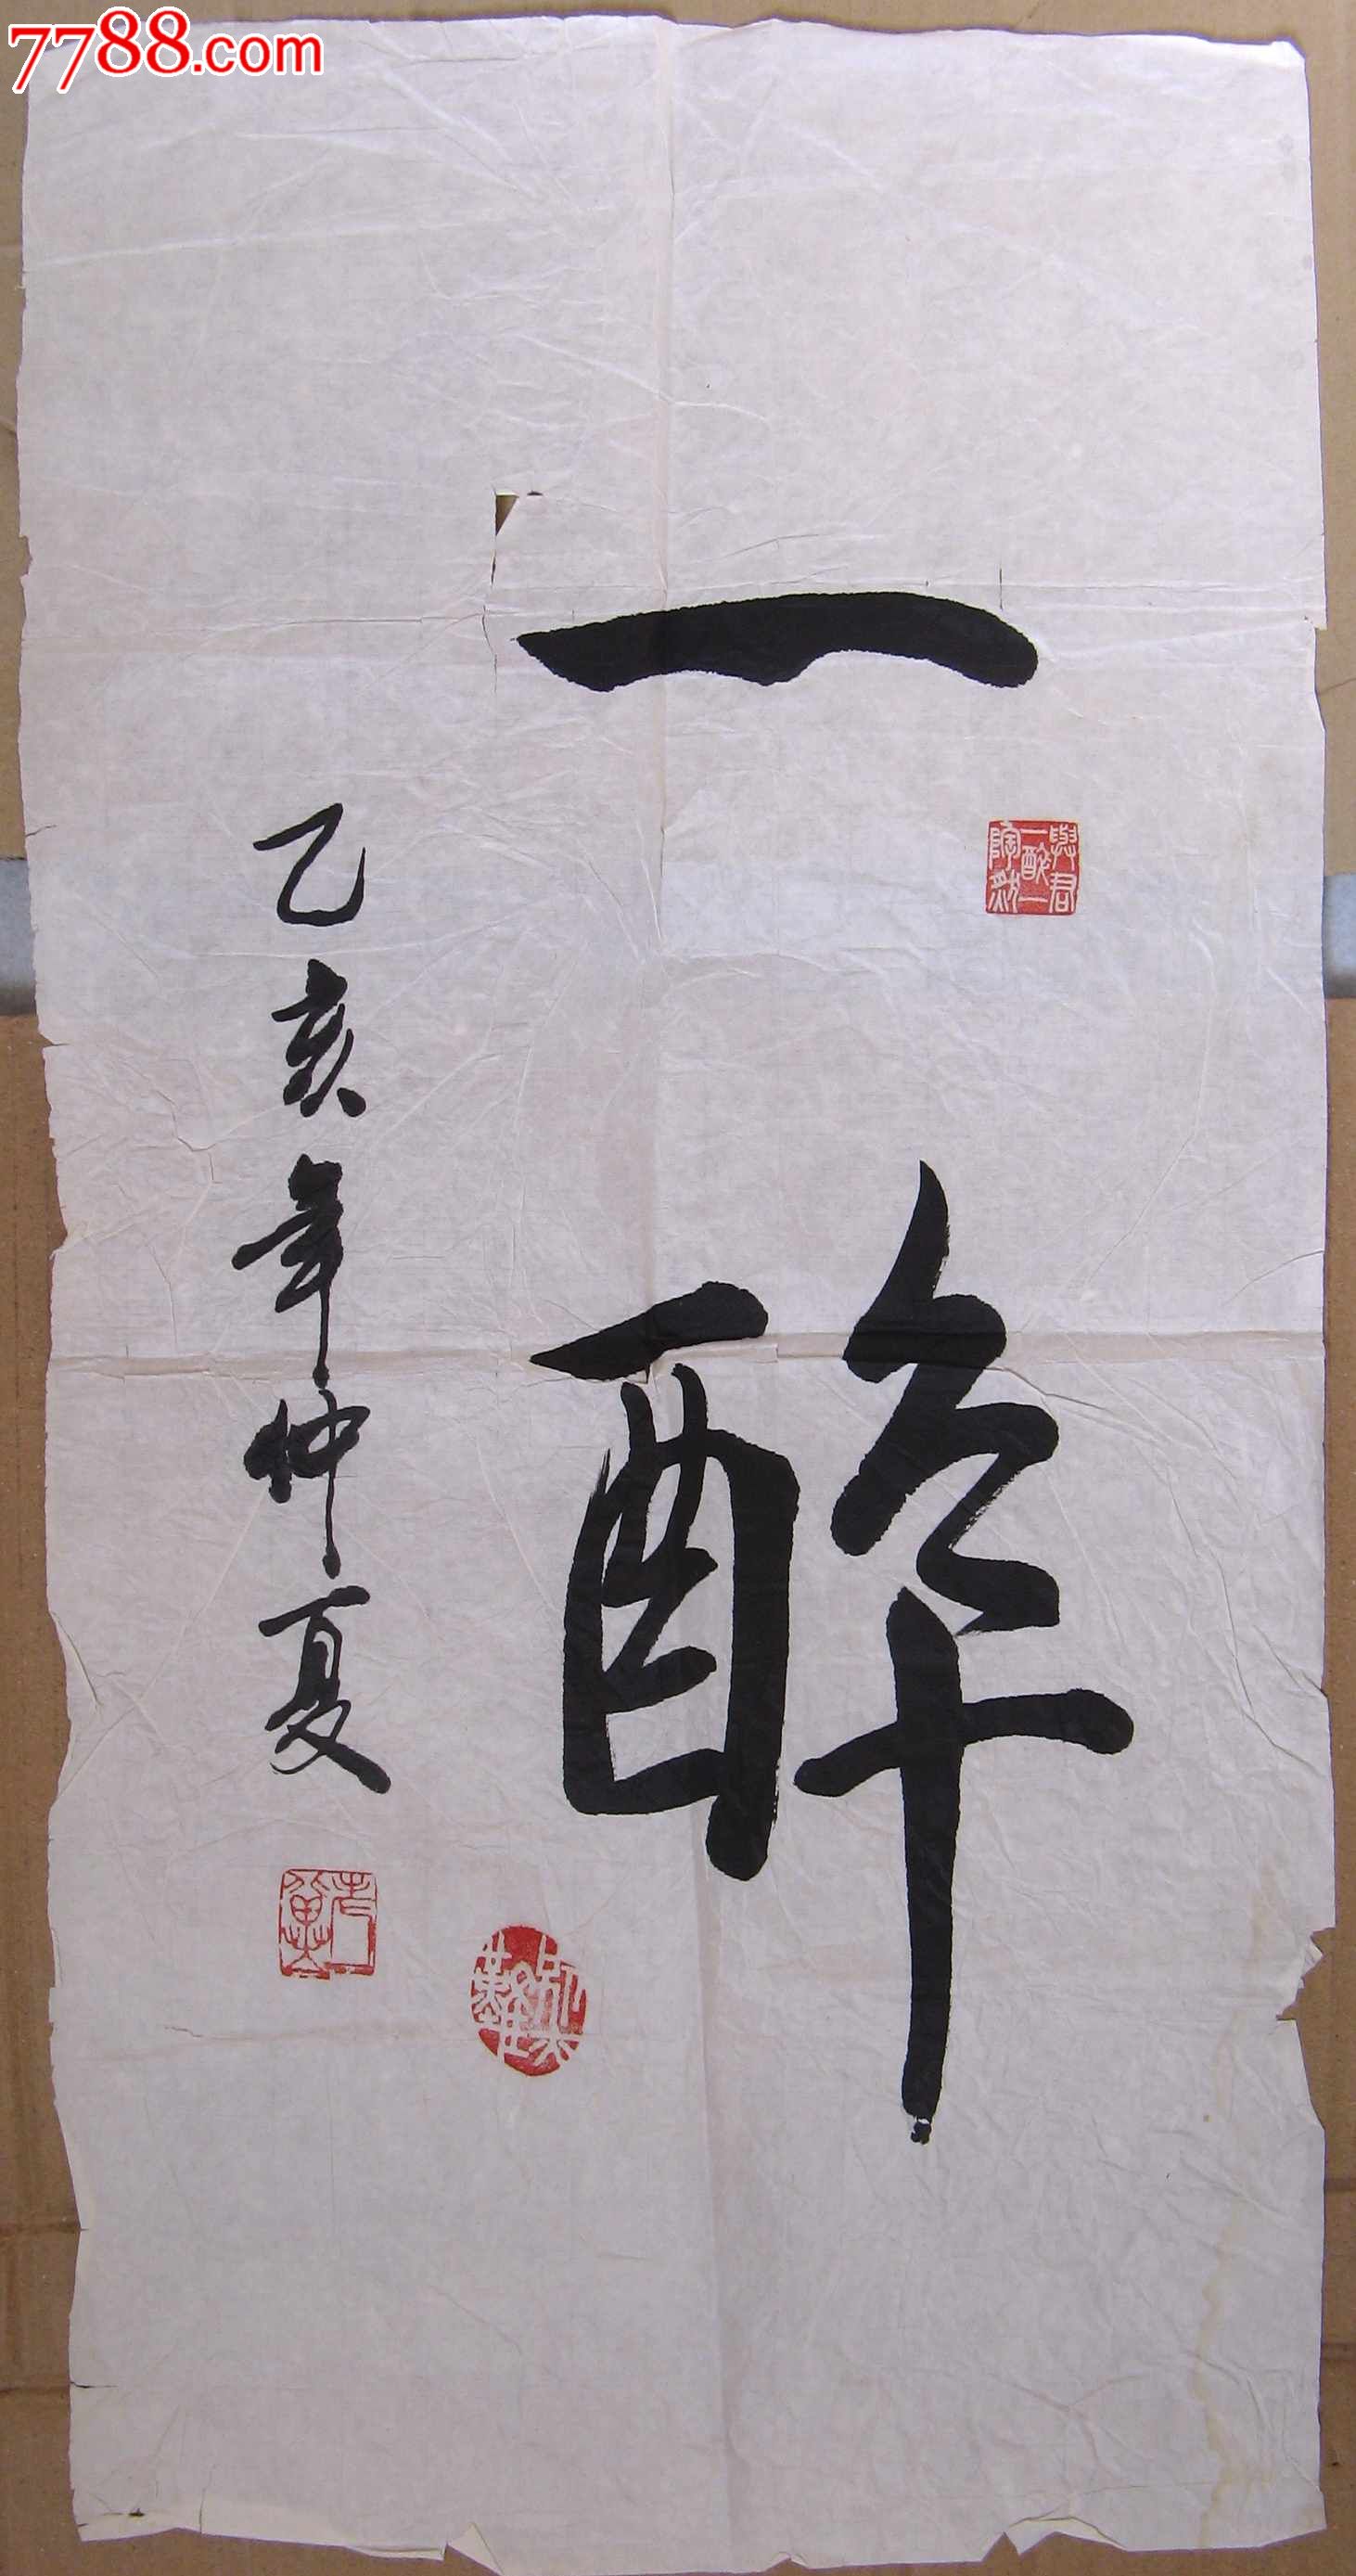 7788.com
一醉
與君一醉一陶然
乙亥年仲夏